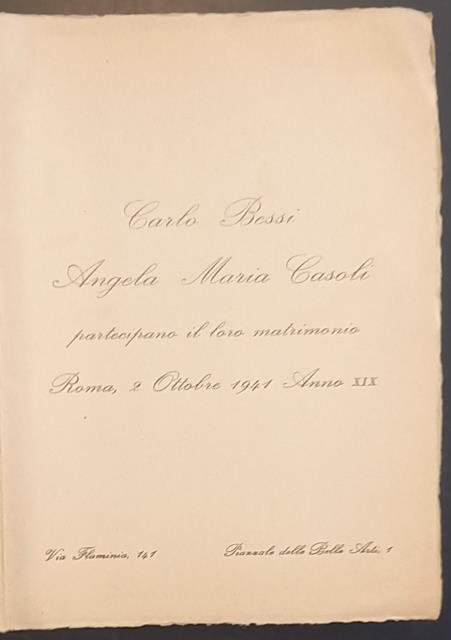 Carlo Bessi
Angela Maria Casoli
partecipano il loro matrimonio
Roma, 2 Ottobre 1941 Anno XIX
Via Flaminia, 141
Piazzale delle Belle Arti, 1